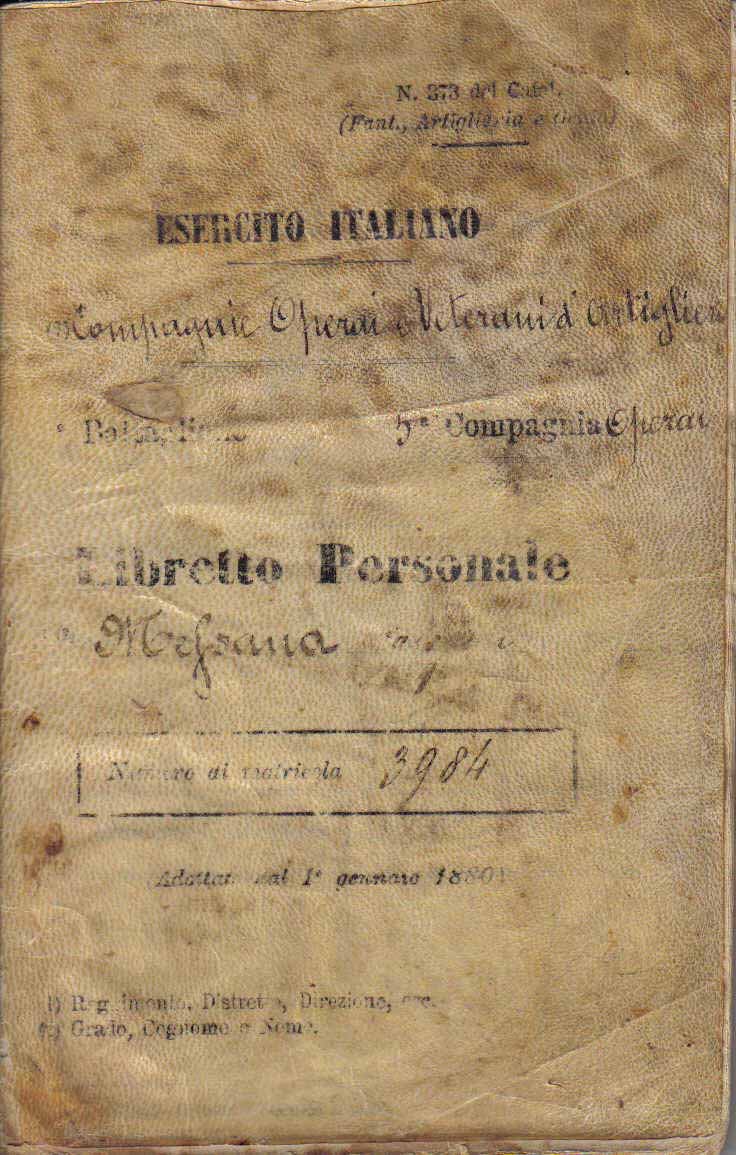 N. 373 del Catal.
(Fant., Artiglieria e Genio)
ESERCITO ITALIANO
Compagnie Operai e Veterani d'Artiglieria
° Battaglione 5ª Compagnia Operai
Libretto Personale
Messana
Numero di matricola 3984
(Adottato dal 1° gennaio 1880)
1) Reggimento, Distretto, Direzione, ecc.
2) Grado, Cognome e Nome.